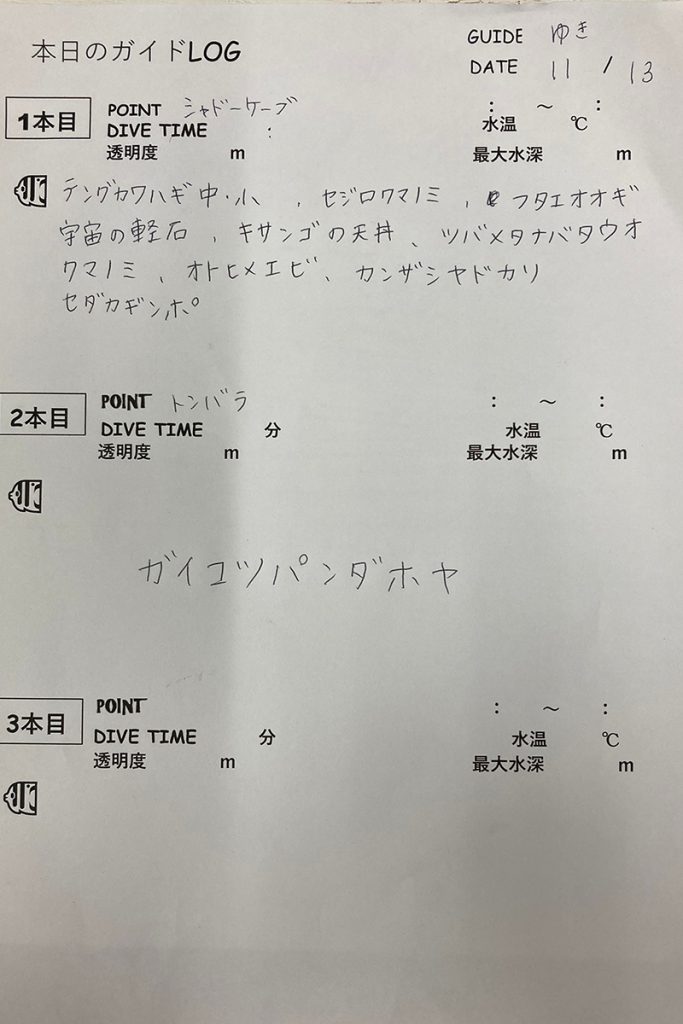 本日のガイドLOG
GUIDE ゆき
DATE 11 / 13
1本目 POINT シャドーケーブ : ～ :
DIVE TIME : 水温 ℃
透明度 m 最大水深 m
テングカワハギ 中・小 , セジロクマノミ , フタエオオギ
宇宙の軽石 , キサンゴの天井、 ツバメタナバタウオ
クマノミ 、 オトヒメエビ、 カンザシヤドカリ
セダカギンポ
2本目 POINT トンバラ : ～ :
DIVE TIME 分 水温 ℃
透明度 m 最大水深 m
ガイコツパンダホヤ
3本目 POINT : ～ :
DIVE TIME 分 水温 ℃
透明度 m 最大水深 m